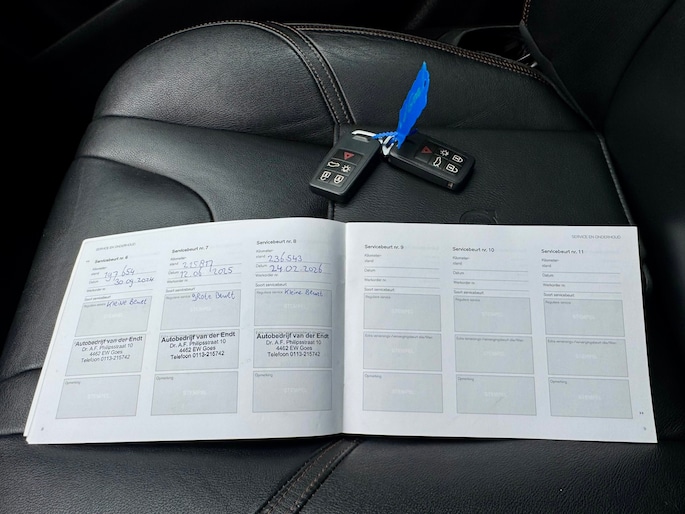 SERVICE EN ONDERHOUD
Servicebeurt nr. 6
Kilometer-
stand:
197.654
Datum: 30.09.2024
Werkorder nr.
Soort servicebeurt
Reguliere service
Kleine Beurt
Autobedrijf van der Endt
Dr. A.F. Philipsstraat 10
4462 EW Goes
Telefoon 0113-215742
Opmerking
STEMPEL
Servicebeurt nr. 7
Kilometer-
stand:
Datum: 12.06.2025
Werkorder nr.
Soort servicebeurt
Reguliere service
grote Beurt
Autobedrijf van der Endt
Dr. A.F. Philipsstraat 10
4462 EW Goes
Telefoon 0113-215742
Opmerking
STEMPEL
Servicebeurt nr. 8
Kilometer-
stand:
236.543
Datum: 24.02.2026
Werkorder nr.
Soort servicebeurt
Reguliere service
Kleine Beurt
Autobedrijf van der Endt
Dr. A.F. Philipsstraat 10
4462 EW Goes
Telefoon 0113-215742
Opmerking
STEMPEL
SERVICE EN ONDERHOUD
Servicebeurt nr. 9
Kilometer-
stand:
Datum:
Werkorder nr.
Soort servicebeurt
Reguliere service
STEMPEL
STEMPEL
Opmerking
STEMPEL
Servicebeurt nr. 10
Kilometer-
stand:
Datum:
Werkorder nr.
Soort servicebeurt
Reguliere service
STEMPEL
STEMPEL
Opmerking
STEMPEL
Servicebeurt nr. 11
Kilometer-
stand:
Datum:
Werkorder nr.
Soort servicebeurt
Reguliere service
STEMPEL
STEMPEL
Opmerking
STEMPEL